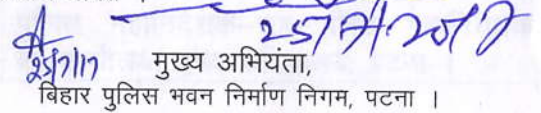 25/7/2017
25/7/17 मुख्य अभियंता,
बिहार पुलिस भवन निर्माण निगम, पटना ।